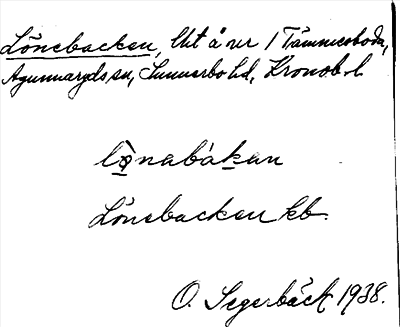 Lönebacken, Utå ner / Tämnesboda,
Agunnaryds sn, Sunnerbo hd, Kronob. l.
lö̀nabák̲an
Lönebacken kb.
O. Segerbäck 1938.